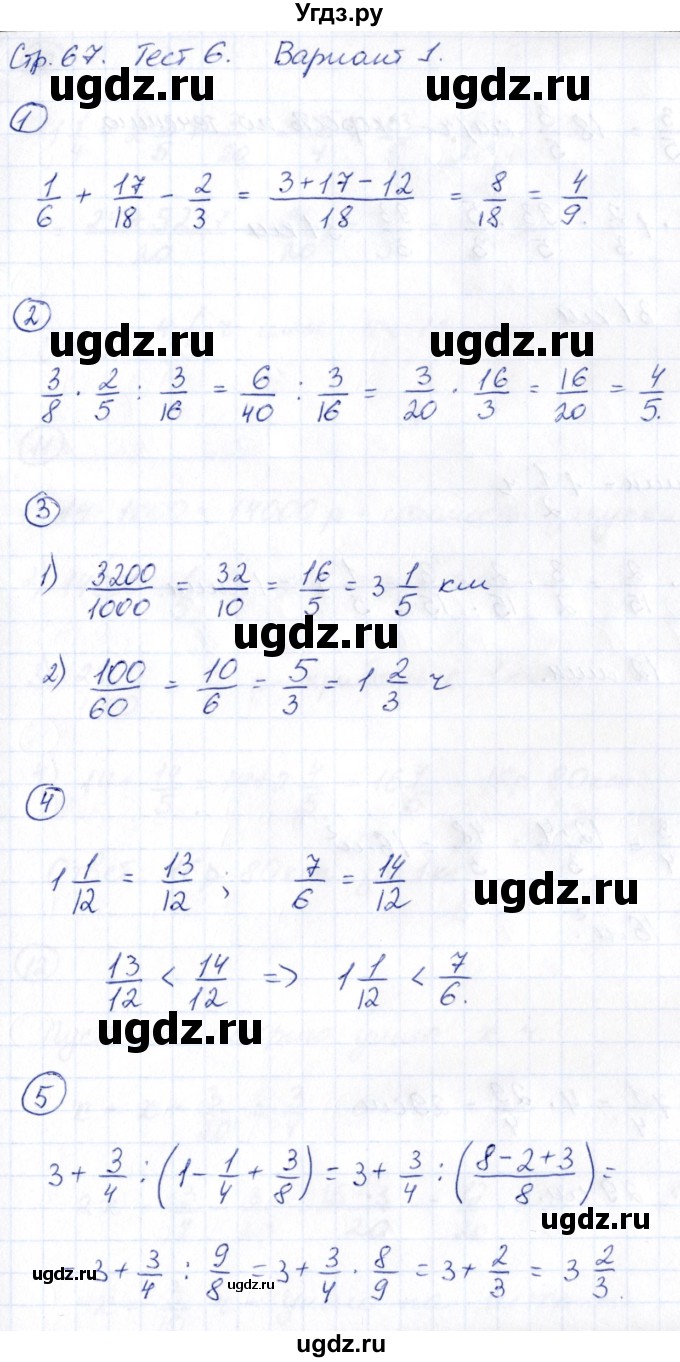 Угдз.ру
Стр. 67. Тест 6. Вариант 1.
ugdz.ru ugdz.ru
1
1/6 + 17/18 - 2/3 = (3+17-12)/18 = 8/18 = 4/9.
ugdz.ru
2
ugdz.ru ugdz.ru
3/8 · 2/5 : 3/16 = 6/40 : 3/16 = 3/20 · 16/3 = 16/20 = 4/5.
3
1) 3200/1000 = 32/10 = 16/5 = 3 1/5 км
ugdz.ru
2) 100/60 = 10/6 = 5/3 = 1 2/3 ч
4
1 1/12 = 13/12; 7/6 = 14/12
ugdz.ru
13/12 < 14/12 => 1 1/12 < 7/6.
ugdz.ru
5
3 + 3/4 : (1 - 1/4 + 3/8) = 3 + 3/4 : ((8-2+3)/8) =
ugdz.ru
= 3 + 3/4 : 9/8 = 3 + 3/4 · 8/9 = 3 + 2/3 = 3 2/3.
ugdz.ru ugdz.ru
ugdz.ru